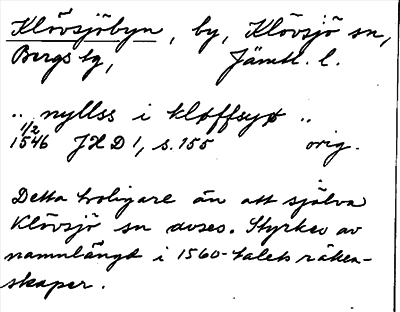 Klövsjöbyn, by, Klövsjö sn,
Bergs tg, Jämtl. l.
„ nyllss i kløffsyø „
1/2 1546 JHD 1, s. 155 orig.
Detta troligare än att själva
Klövsjö sn avses. Styrkes av
namnlängd i 1560-talets räken-
skaper.